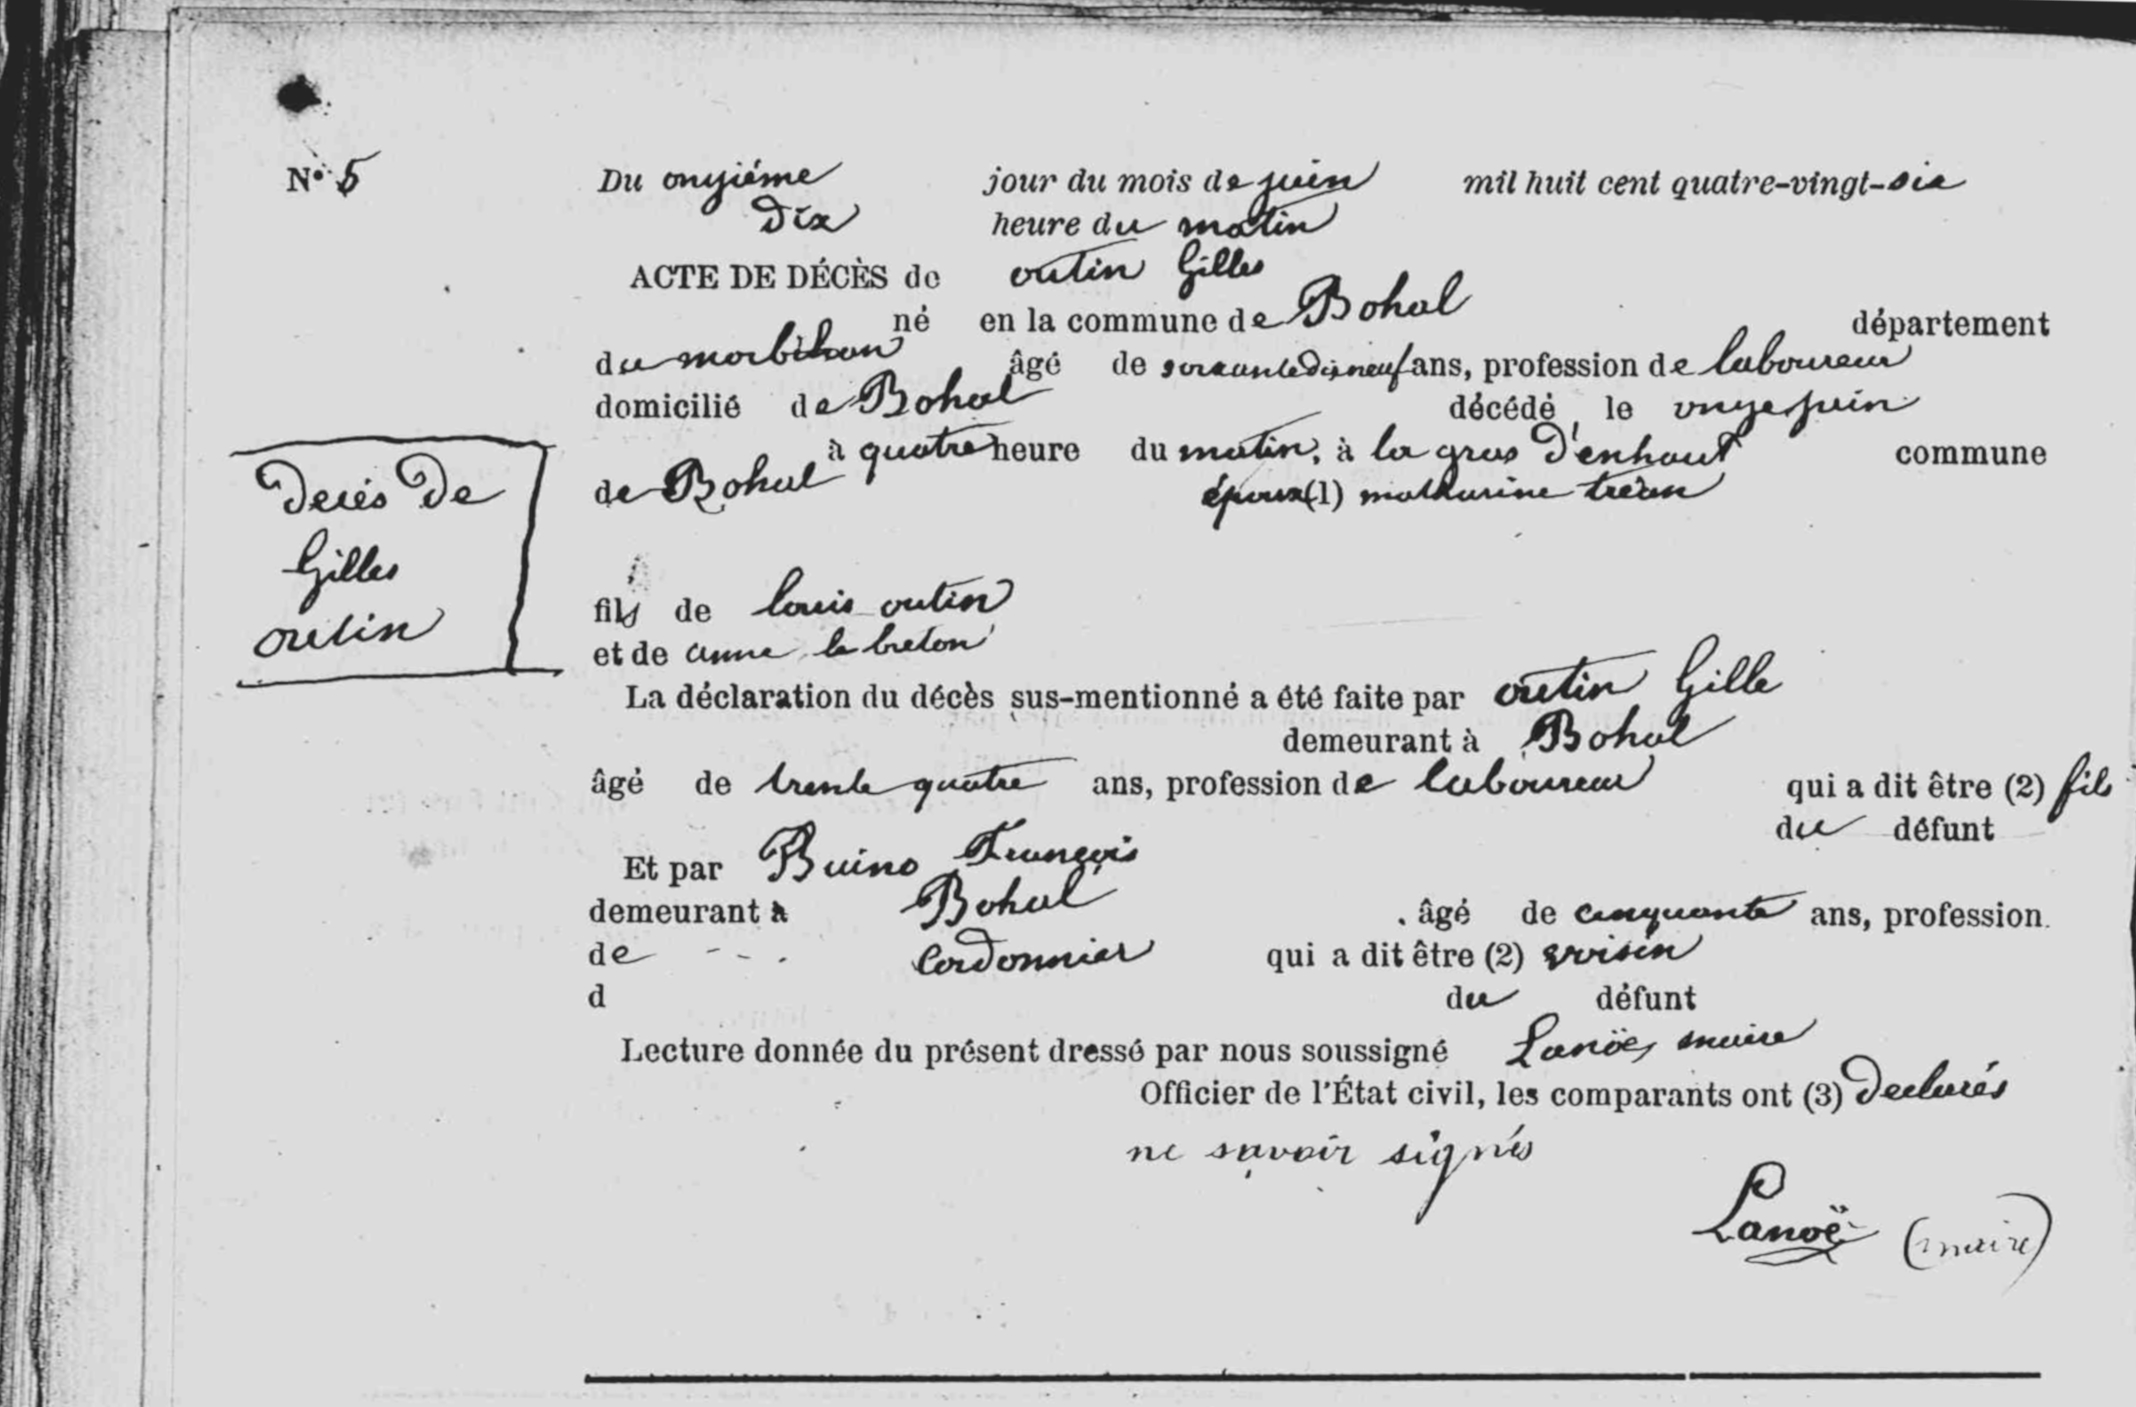 N° 5
Du onzième jour du mois de juin mil huit cent quatre-vingt-six
Dix heure du matin
ACTE DE DÉCÈS de outin Gilles
né en la commune de Bohal département
du morbihan âgé de soixante dix neuf ans, profession de laboureur
domicilié de Bohal décédé le onze juin
à quatre heure du matin, à la gras D'enhaut commune
de Bohal époux (1) mathurine tréan
Decés De
Gilles
outin
fils de louis outin
et de anne le breton
La déclaration du décès sus-mentionné a été faite par outin Gille
demeurant à Bohal
âgé de trente quatre ans, profession de laboureur qui a dit être (2) fils
du défunt
Et par Buino François
demeurant à Bohal âgé de cinquante ans, profession
de Cordonnier qui a dit être (2) voisin
d du défunt
Lecture donnée du présent dressé par nous soussigné Lanoë, maire
Officier de l'État civil, les comparants ont (3) Declarés
ne savoir signés
Lanoë (maire)